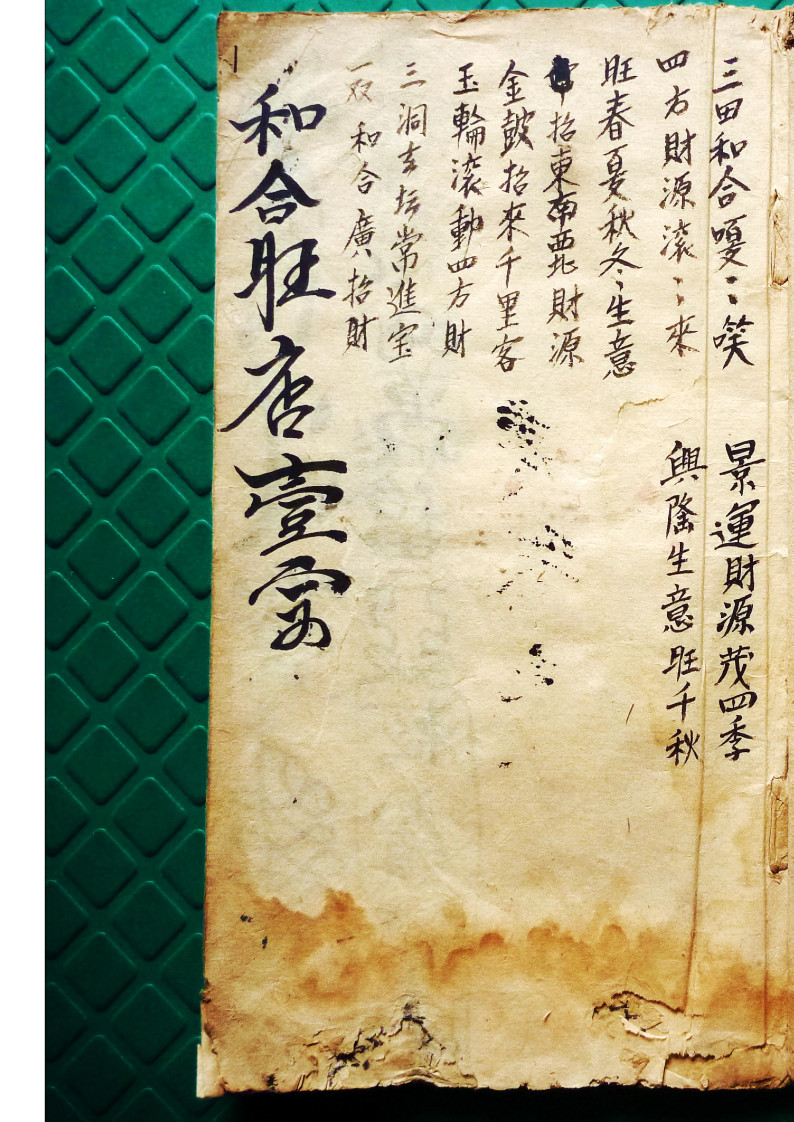 三田和合嗄〻㗛
四方財源滚〻來
旺春夏秋冬〻生意
招東南西北財源
金皷招來千里客
玉輪滚動四方財
三洞玄坛常進宝
一双和合廣招財
景運財源茂四季
興隆生意旺千秋
和合旺店壹
1